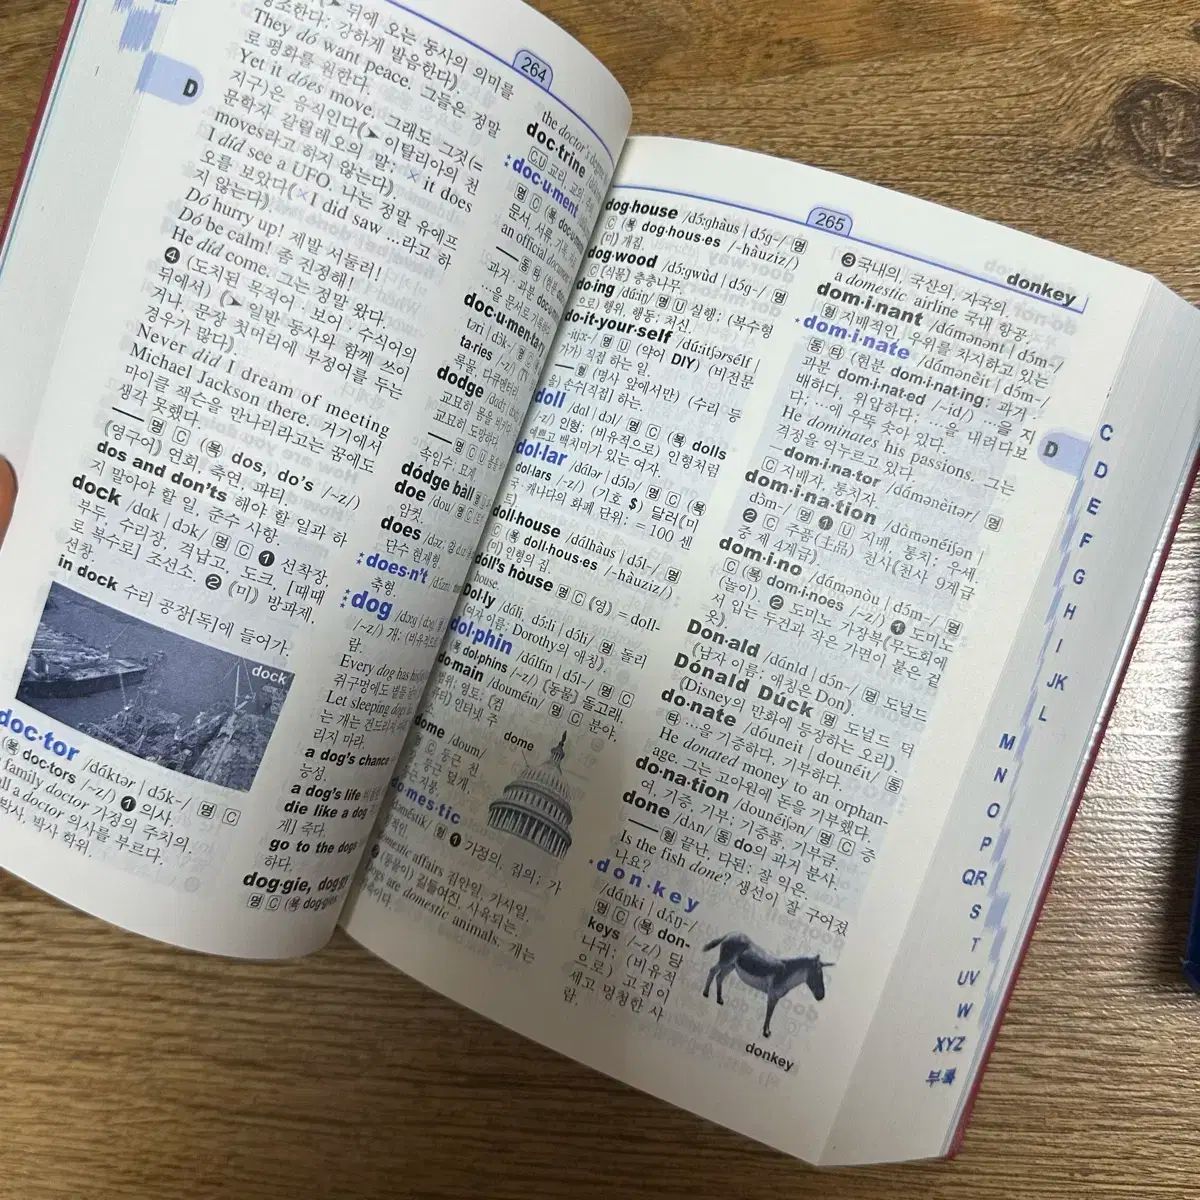 264
D
뒤에 오는 동사의 의미를
강조한다; 강하게 발음한다).
They dó want peace. 그들은 정말
로 평화를 원한다.
Yet it dóes move. 그래도 그것(=
지구)은 움직인다(➤ 이탈리아의 천
문학자 갈릴레오의 말; × it does
moves라고 하지 않는다)
I díd see a UFO. 나는 정말 유에프
오를 보았다(×I did saw ...라고 하
지 않는다)
Dó hurry up! 제발 서둘러!
Dó be calm! 좀 진정해!
He díd come. 그는 정말 왔다.
❹ (도치된 목적어, 보어, 수식어의
뒤에서) (➤ 일반 동사와 함께 쓰이
거나, 문장 첫머리에 부정어를 두는
경우가 많다).
Never did I dream of meeting
Michael Jackson there. 거기에서
마이클 잭슨을 만나리라고는 꿈에도
생각 못했다.
── 명 C (복 dos, do's /-z/)
(영구어) 연회, 축연, 파티.
dos and don'ts 해야 할 일과 하
지 말아야 할 일, 준수 사항.
dock /dɑk | dɔk/ 명 C ❶ 선착장,
부두, 수리장, 격납고, 도크, [때때
로 복수로] 조선소. ❷ (미) 방파제,
선창.
in dock 수리 공장[독]에 들어가.
dock
doc·tor /dáktər | dɔ́k-/ 명 C
(복 doctors /-z/) ❶ 의사.
family doctor 가정의 주치의.
call a doctor 의사를 부르다.
박사, 박사 학위.
the doctor's
doc·trine
C,U 교리, 교의
doc·u·ment
문서, 서류, 기록
an official document
── 동 타
과거·과분
...을 문서로 기록
doc·u·men·ta
taries
록물, 다큐멘터리
dodge
교묘히 몸을 비키
교묘히 도망하다
속임수, 묘계
dódge bàll
doe /dou/
암컷.
does
단수 현재형
doesn't
축형.
dog
/-z/) 개; (비유적으로)
람.
Every dog has
쥐구멍에도 볕들
Let sleeping dogs
는 개는 건드리지
리지 마라.
a dog's chance
능성.
a dog's life
die like a dog
게] 죽다.
go to the dogs
하다.
dog·gie, dog·gy
명 C (복 doggies
265
donkey
dog·house /dɔ́ːghàus | dɔ́g-/ 명
C (복 dog·hous·es /-hàuziz/)
(미) 개집.
dog·wood /dɔ́ːgwùd | dɔ́g-/ 명
C (식물) 층층나무.
do·ing /dúːiŋ/ 명 U 실행; (복수형
으로) 행위, 행동; 처신.
do-it-your·self /dúːitjərsélf |
-tjɔː-/ 명 U (약어 DIY) (비전문
가가) 직접 하는 일.
── 형 (명사 앞에서만) (수리 등
을) 손수[직접] 하는.
doll /dɑl | dɔl/ 명 C (복 dolls
/-z/) 인형; (비유적으로) 인형처럼
예쁘고 백치미가 있는 여자.
dol·lar /dálər | dɔ́lə/ 명 C (복
dol·lars /-z/) (기호 $) 달러(미
국·캐나다의 화폐 단위; = 100 센
트)
doll·house /dálhàus | dɔ́l-/ 명
C (복 doll·hous·es /-hàuziz/)
(미) 인형의 집.
doll's hòuse 명 C (영) = doll-
house.
Dol·ly /dáli, dɔ́ːli | dɔ́li/ 명 돌리
(여자 이름; Dorothy의 애칭).
dol·phin /dálfin | dɔ́l-/ 명 C
(복 dolphins /-z/) [동물] 돌고래.
do·main /douméin/ 명 C 분야,
범위; 영토; (컴
퓨터) 인터넷 주
dome /doum/
명 C 둥근 천
장, 둥근 덮개,
둥근 지붕.
dome
do·mes·tic
/dəméstik/ 형 ❶ 가정의, 집의; 가
정적인.
domestic affairs 집안일, 가사일.
❷ (동물이) 길들여진, 사육되는.
Dogs are domestic animals. 개는
가축이다.
❸국내의, 국산의, 자국의.
a domestic airline 국내 항공.
dom·i·nant /dámənənt | dɔ́m-/
형 지배적인, 우위를 차지하고 있는
dom·i·nate /dámənèit | dɔ́m-/
동 타 (현분 dom·i·nat·ing; 과거·
과분 dom·i·nat·ed /-id/) ...을 지
배하다, 위압하다; ...을 내려다보
다; ...에 우뚝 솟아 있다.
He dominates his passions. 그는
격정을 억누르고 있다.
dom·i·na·tor /dámənèitər/ 명
C 지배자, 통치자.
dom·i·na·tion /dàmənéiʃən |
dɔ̀m-/ 명 ❶ U 지배, 통치; 우세.
❷ C 주품(主品) 천사(천사 9계급
중 제 4계급)
dom·i·no /dámənòu | dɔ́m-/ 명
C (복 dom·i·noes /-z/) ❶ 도미노
(놀이). ❷ 도미노 가장복(무도회에
서 입는 두건과 작은 가면이 붙은 겉
옷).
Don·ald /dánld | dɔ́n-/ 명 도널드
(남자 이름; 애칭은 Don).
Dónald Dúck 명 도널드 덕
(Disney의 만화에 등장하는 오리).
do·nate /dóuneit | dounéit/ 동
타 ...을 기증하다, 기부하다.
He donated money to an orphan-
age. 그는 고아원에 돈을 기부했다.
do·na·tion /dounéiʃən/ 명 C 증
여, 기증, 기부; 기증품, 기부금.
done /dʌn/ 동 do의 과거 분사.
── 형 끝난, 다된; 잘 익은.
Is the fish done? 생선이 잘 구어졌
나요?
don·key
/dáŋki | dɔ́ŋ-/
명 C (복 don-
keys /-z/) 당
나귀; (비유적
으로) 고집이
세고 멍청한 사
람.
donkey
D
C
D
E
F
G
H
I
JK
L
M
N
O
P
QR
S
T
UV
W
XYZ
부록